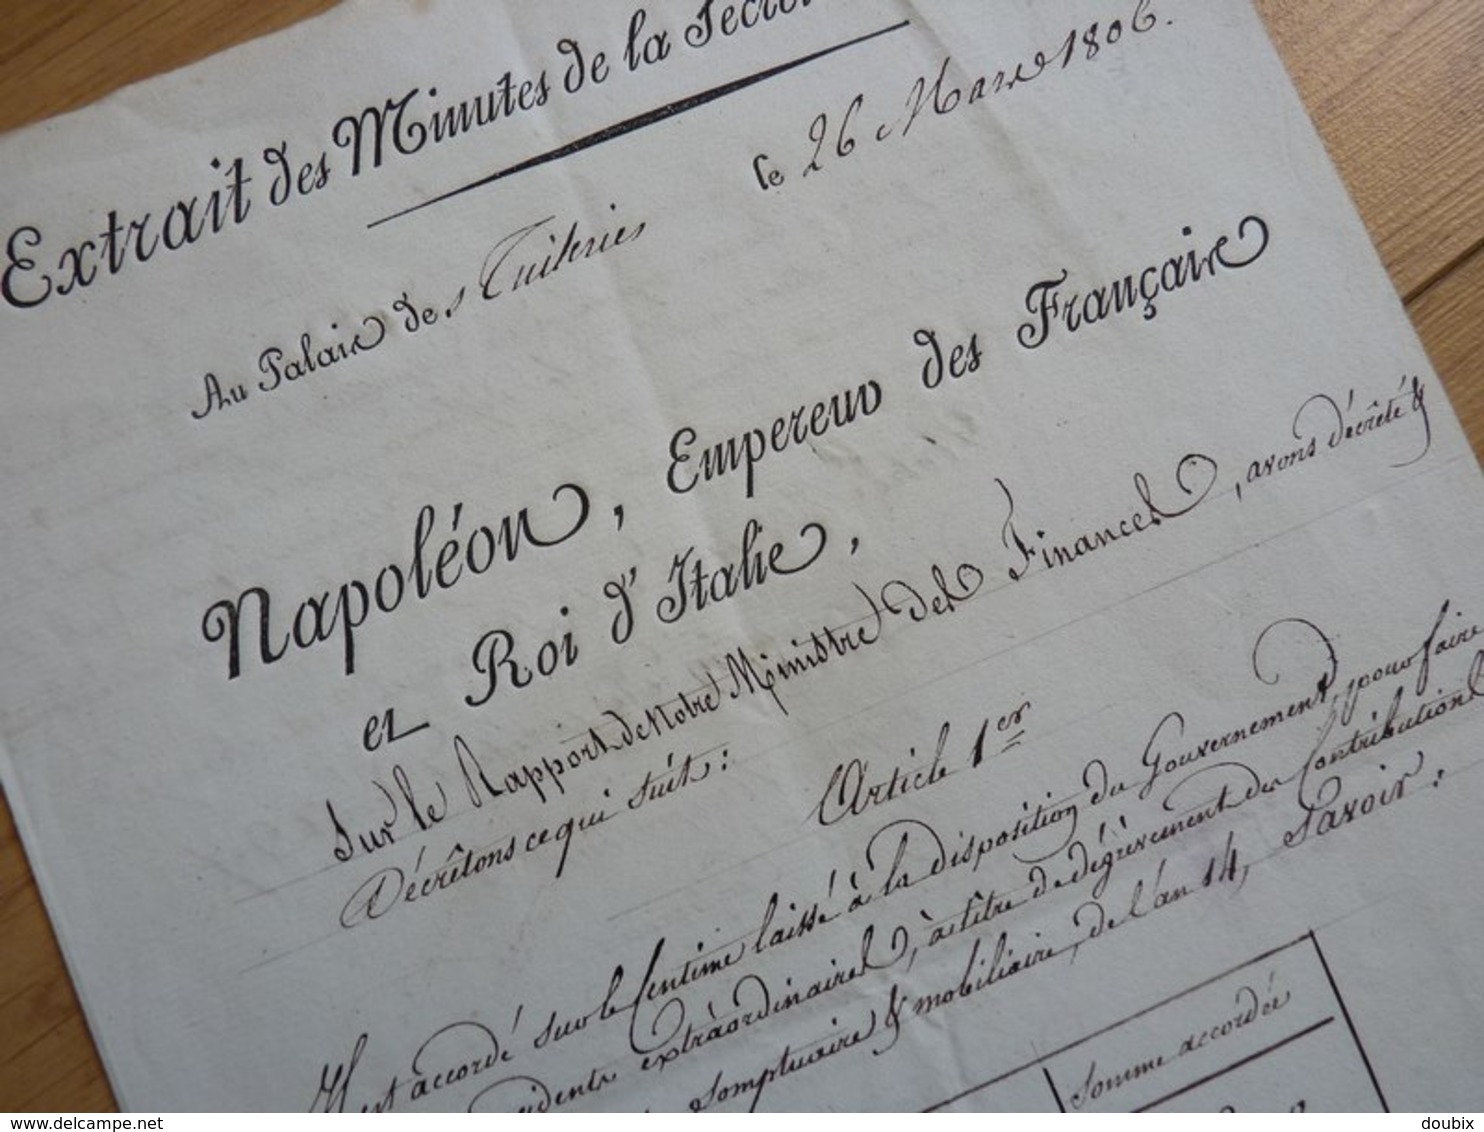 Extrait des Minutes de la Secré
Au Palais des Tuileries le 26 Mars 1806.
Napoléon, Empereur des Français
et Roi d'Italie,
Sur le Rapport de Notre Ministre des Finances, avons décrêté &
Décrêtons ce qui suit:
Article 1er
Il est accordé sur le Centime laissé à la disposition du Gouvernement, pour faire
extraordinaires, à titre de dégrèvement des Contributions
somptuaire & mobiliaire, de l'an 14, Savoir:
Somme accordée
www.delcampe.net
doubix